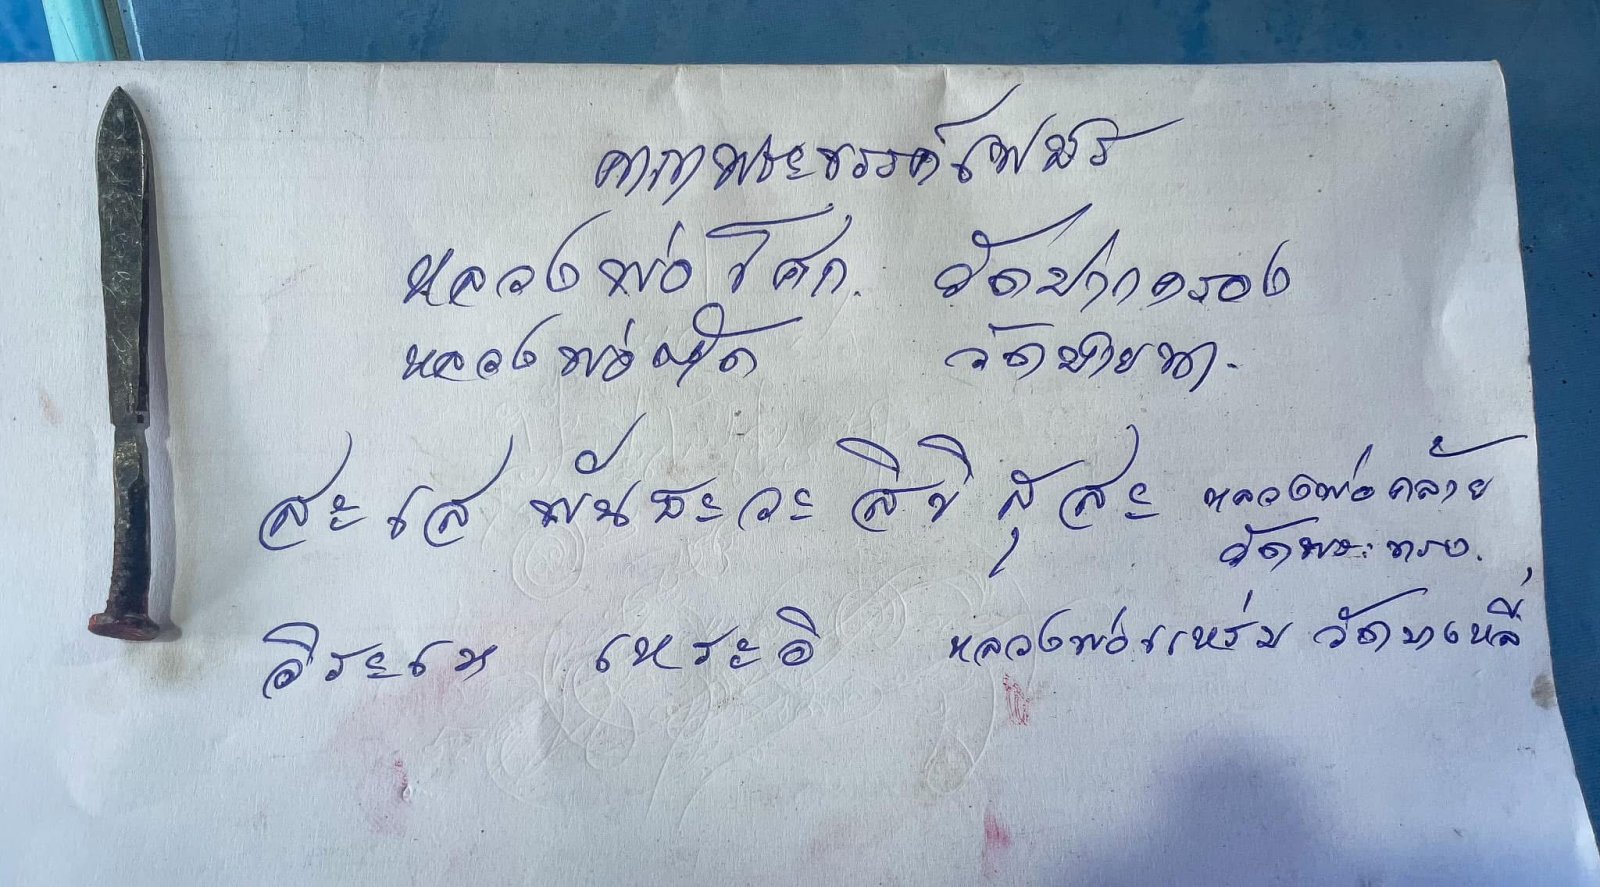 คาถาพระขรรค์เพชร
หลวงพ่อโศก. วัดปากคลอง
หลวงพ่อตัด วัดชายนา.
สะ เส พันธะวะ สิขิ สุ สะ หลวงพ่อคล้าย
วัดพระทรง.
อิระเห เหระอิ หลวงพ่อแหร่ม วัด